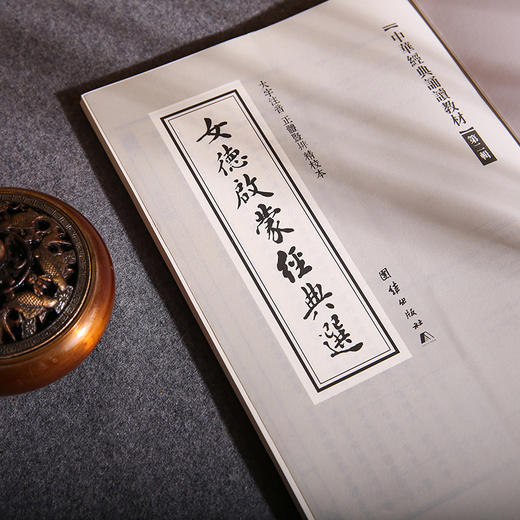 【中華經典誦讀教材】第二輯
大字注音 正體豎排 精校本
女德啟蒙經典選
團结出版社